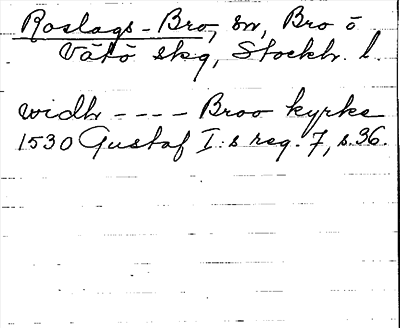 Roslags-Bro, sn, Bro o
Vätö skg, Stockh. l.
widh - - - - Broo kyrke
1530 Gustaf I:s reg. 7, s. 36.